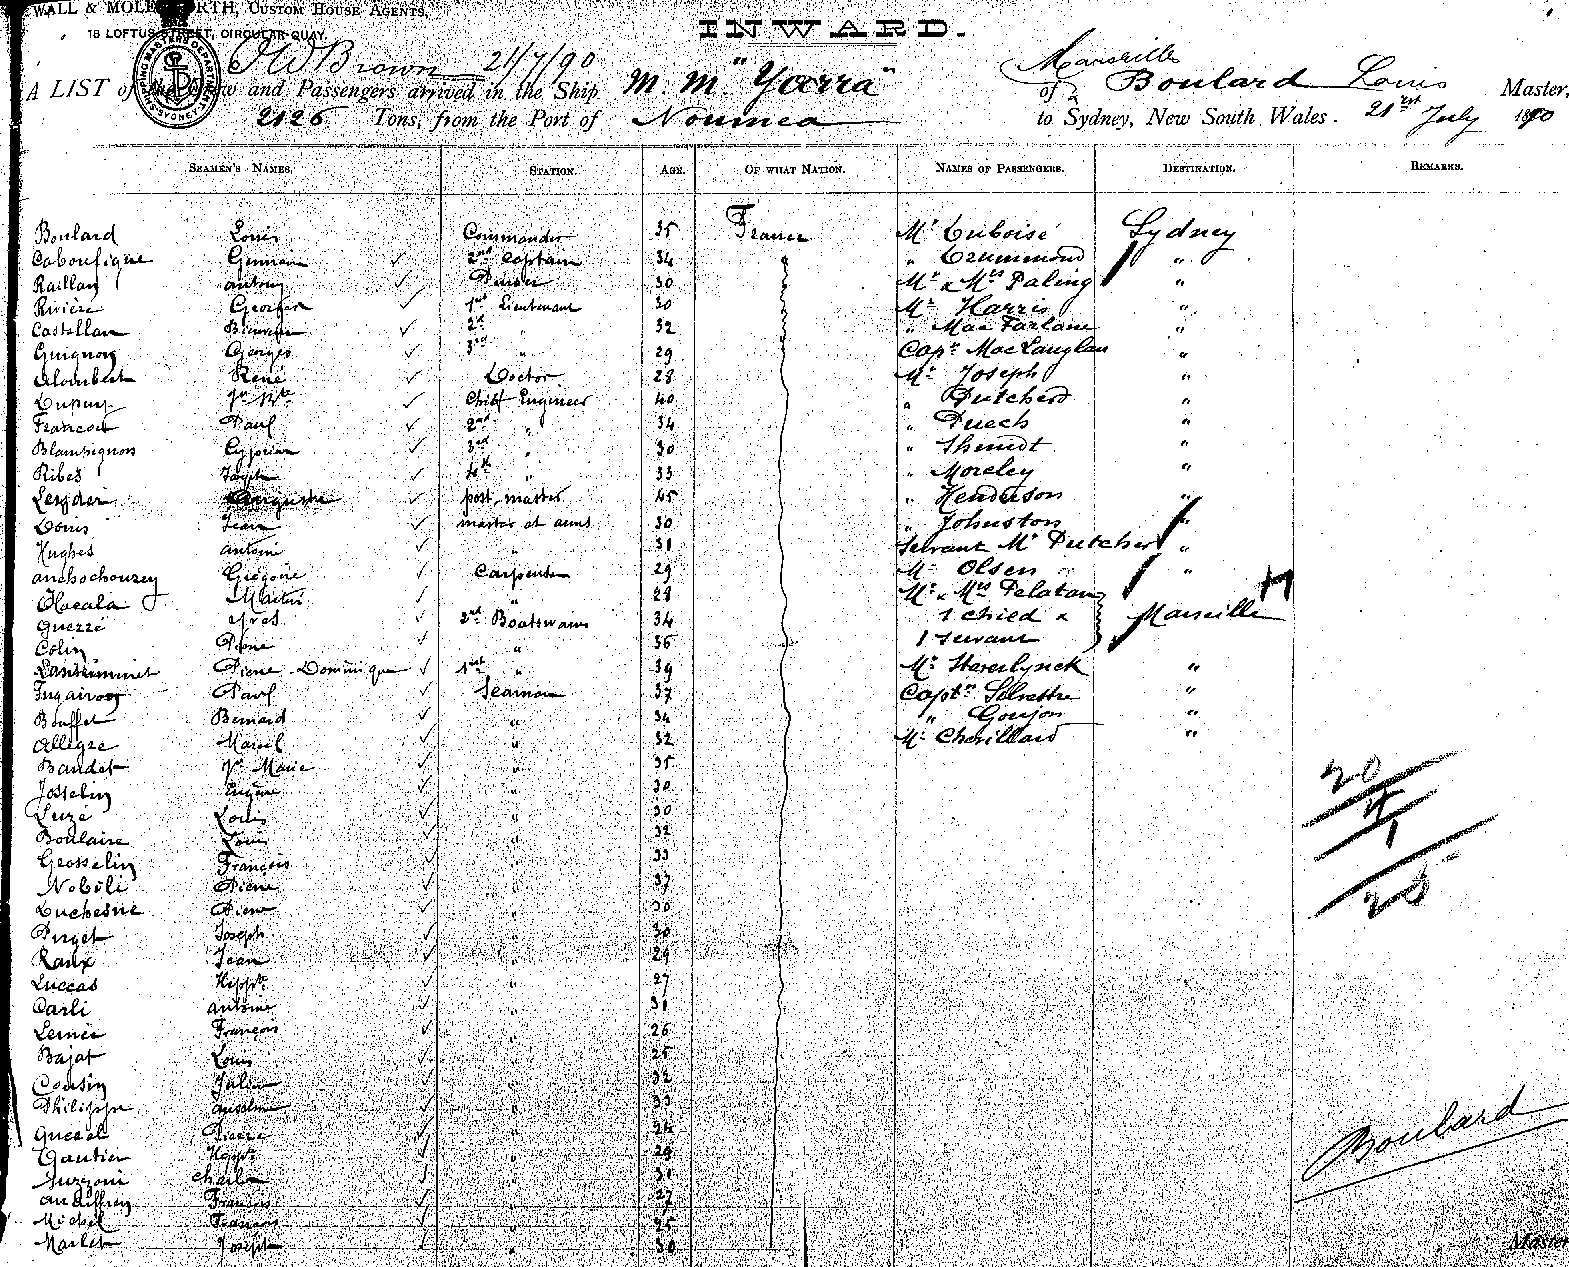 WALL & MOLESWORTH, CUSTOM HOUSE AGENTS,
18 LOFTUS STREET, CIRCULAR QUAY.
INWARD.
Brown 21/7/90
Marseille
A LIST of the Crew and Passengers arrived in the Ship M. M. "Yarra" of Boulard Louis Master,
2126 Tons, from the Port of Noumea to Sydney, New South Wales. 21st July 1890
SEAMEN'S NAMES. STATION. AGE. OF WHAT NATION. NAMES OF PASSENGERS. DESTINATION. REMARKS.
Boulard Louis Commander 35 France Mr Duboisé Sydney
Caboufigue Germain 2nd Captain 34 " Drummond "
Raillan Antony Purser 30 Mr & Mrs Paling "
Rivière Georges 1st Lieutenant 30 Mr Harris "
Castellan 2d " 32 " Mac Farlane "
Guignon Georges 3rd " 29 Capn MacLauglan "
Alombert René Doctor 28 Mr Joseph "
Dupuy Jn Bte Chief Engineer 40 " Dutcherd "
Francou Paul 2nd " 34 " Puech "
Blampignon Cyprien 3rd " 30 " Shmidt "
Ribes Joseph 4th " 33 " Moreley "
Leyder Auguste post master 45 " Henderson "
Louis Jean master at arms 30 " Johnston "
Hughes Antoine " 31 Servant Mr Dutcher "
Grégoire Carpenter 29 Mr Olsen "
Olocala Martin " 28 Mr & Mrs Pelatan
Guezze 2nd Boatswain 34 1 child & Marseille H
Colin Pierre " 36 1 servant
Pierre Dominique 1st " 39 Mr Haverlynck "
Paul Seaman 37 Captn Silvestre "
Bouffet Bernard " 34 " Goujon "
Allègre Marcel " 32 Mr Chevillard "
Baudet Jn Marie " 35
Josselin Eugène " 30
Leize Louis " 30
Boulaire Louis " 32
Geosselin François " 33
Nobili Pierre " 37
Duchesne Pierre " 30
Puget Joseph " 30
Raux Jean " 29
Luccas Hippte " 27
Carli Antoine " 31
Lernée François " 26
Bajat Louis " 25
Cousin Julien " 32
Philippe Anselme " 33
Gueed Pierre " 24
Gautier Hippte " 29
Suzzoni Charles " 31
Audiffren François " 27
Michel François " 25
Marlet Joseph " 30
20
4
1
25
Boulard
Master